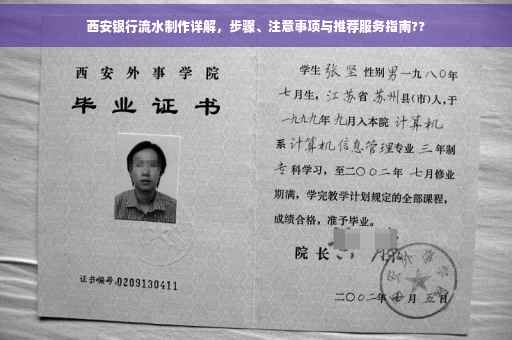 西安银行流水制作详解，步骤、注意事项与推荐服务指南??
西安外事学院
毕业证书
证书编号:0209130411
学生张坚性别男一九八〇年
七月生，江苏省苏州县(市)人,于
一九九九年九月入本院计算机
系计算机信息管理专业三年制
专科学习，至二〇〇二年七月修业
期满，学完教学计划规定的全部课程，
成绩合格，准予毕业。
院长
二〇〇二年 月五日